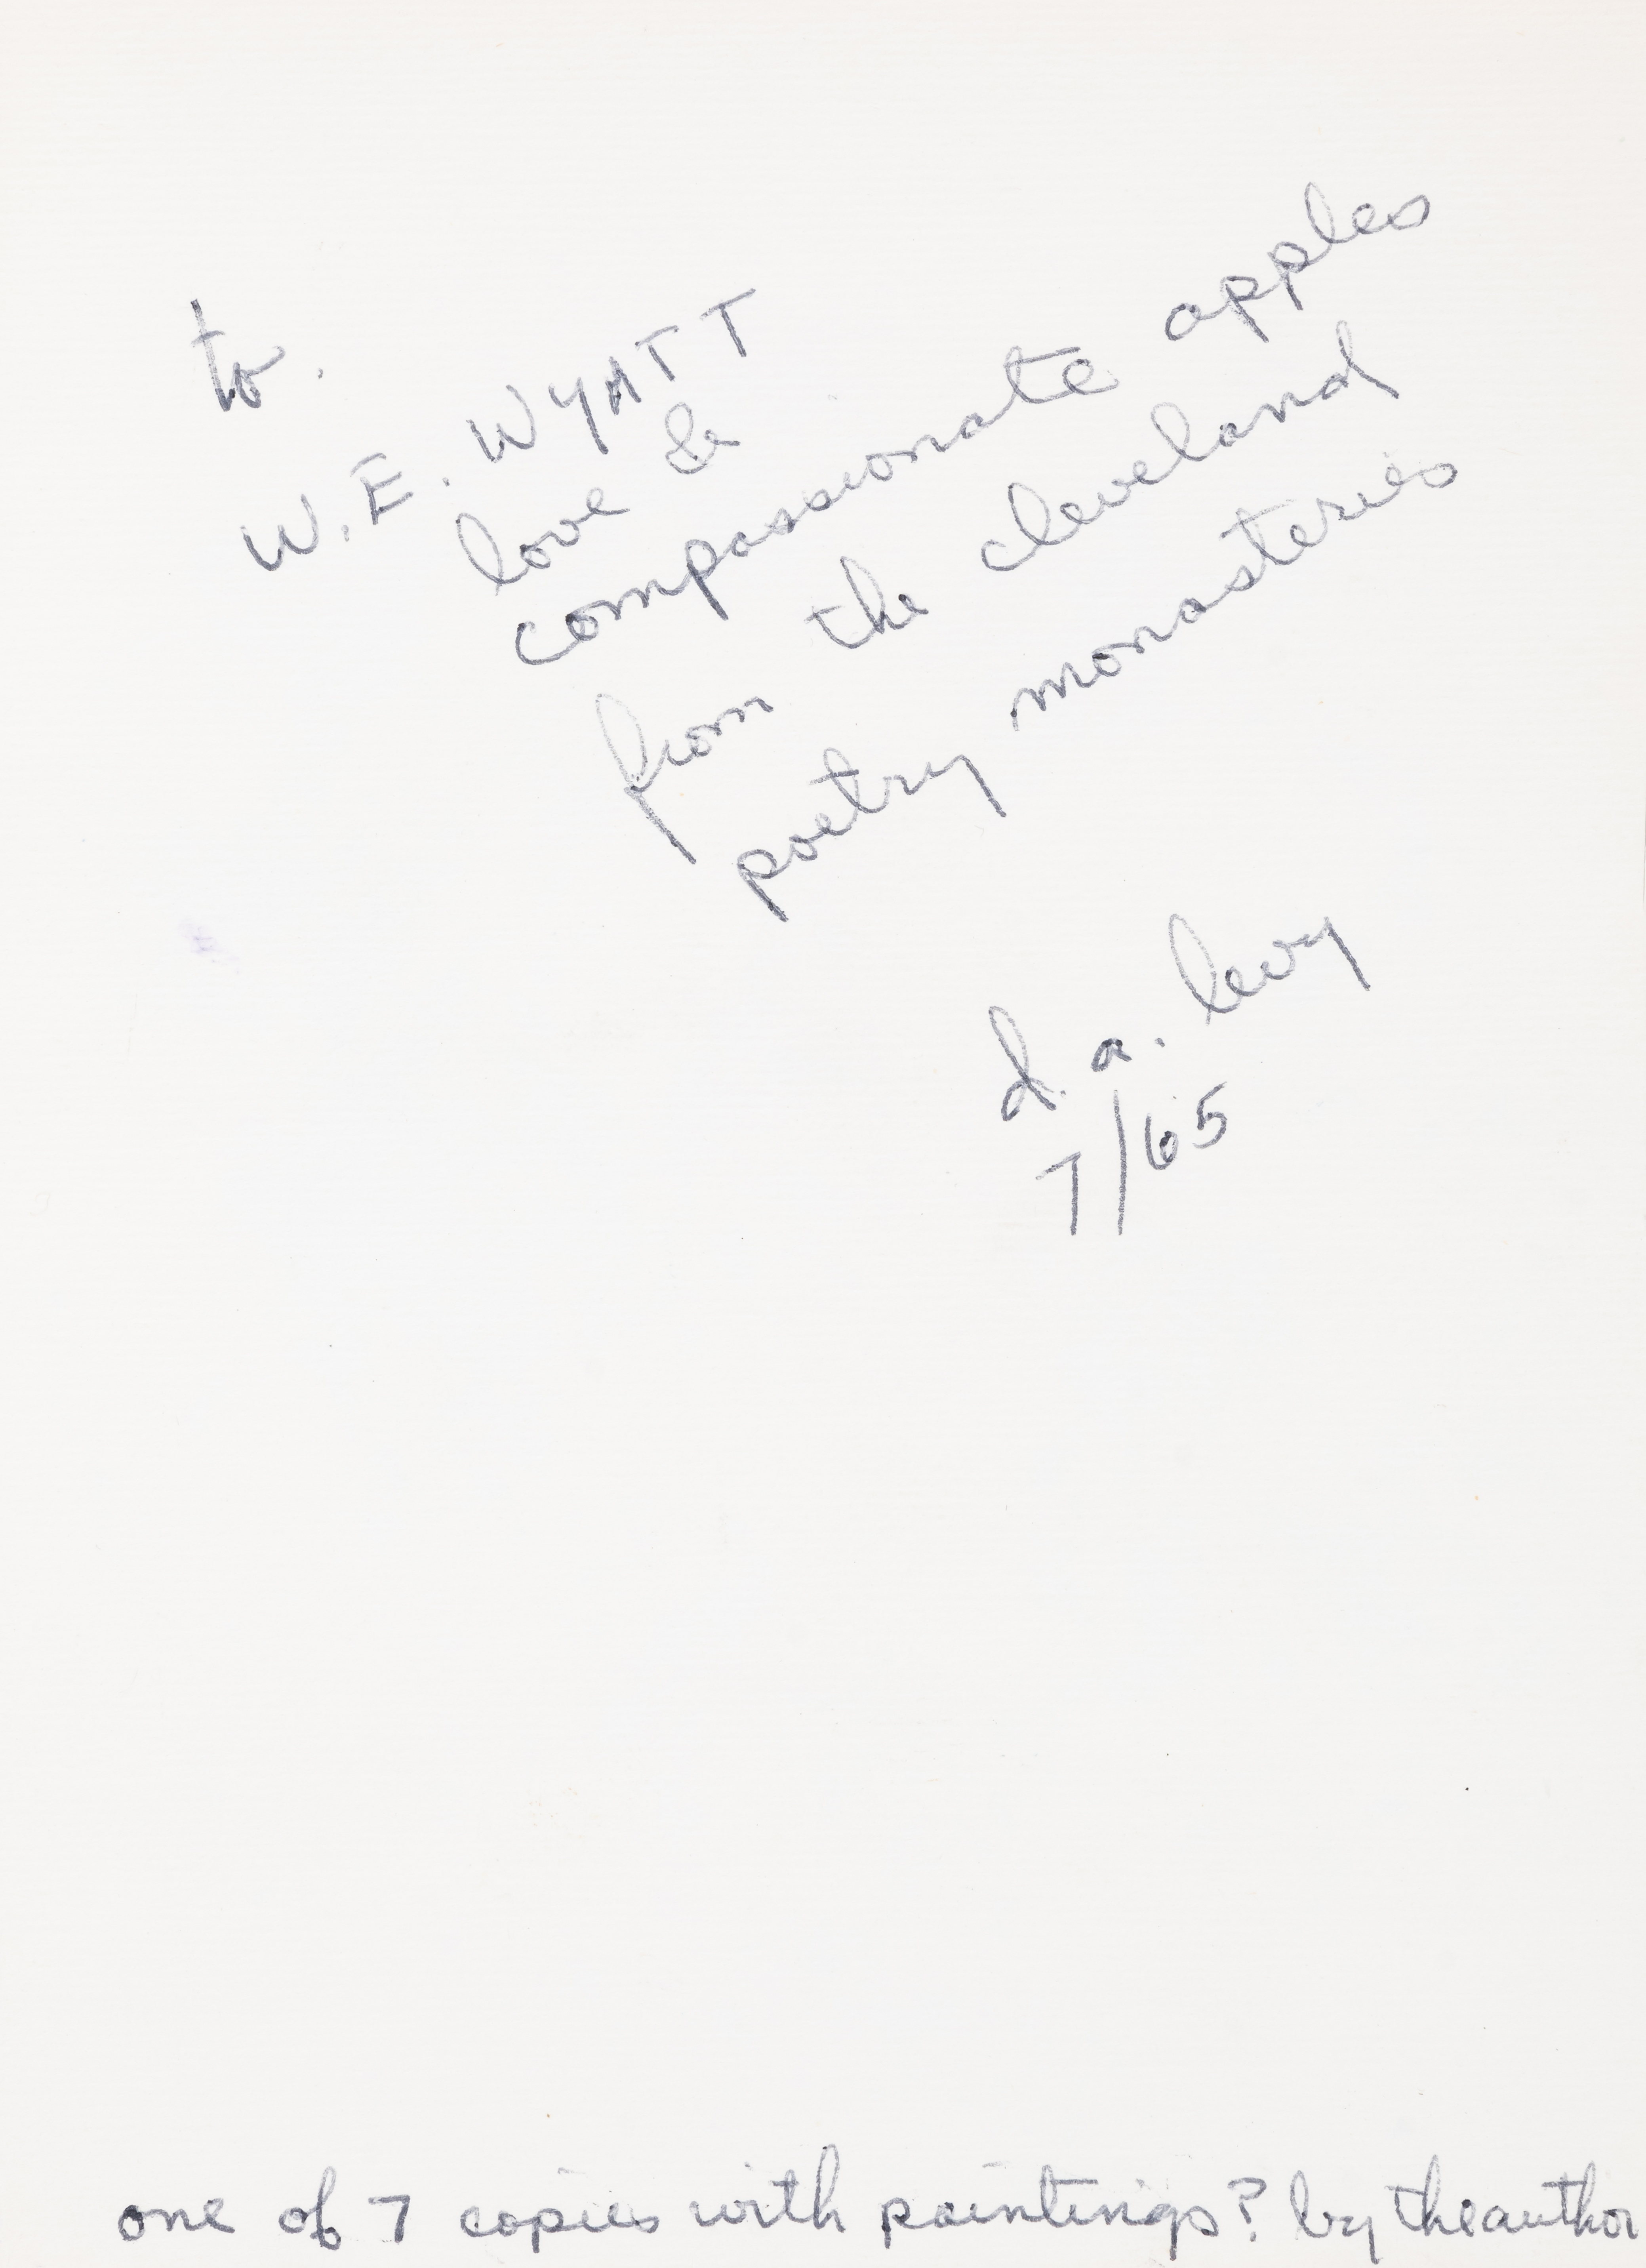 to.
W.E. WYATT
love &
compassionate apples
from the cleveland
poetry monasteries
d. a. levy
7/65
one of 7 copies with paintings? by the author